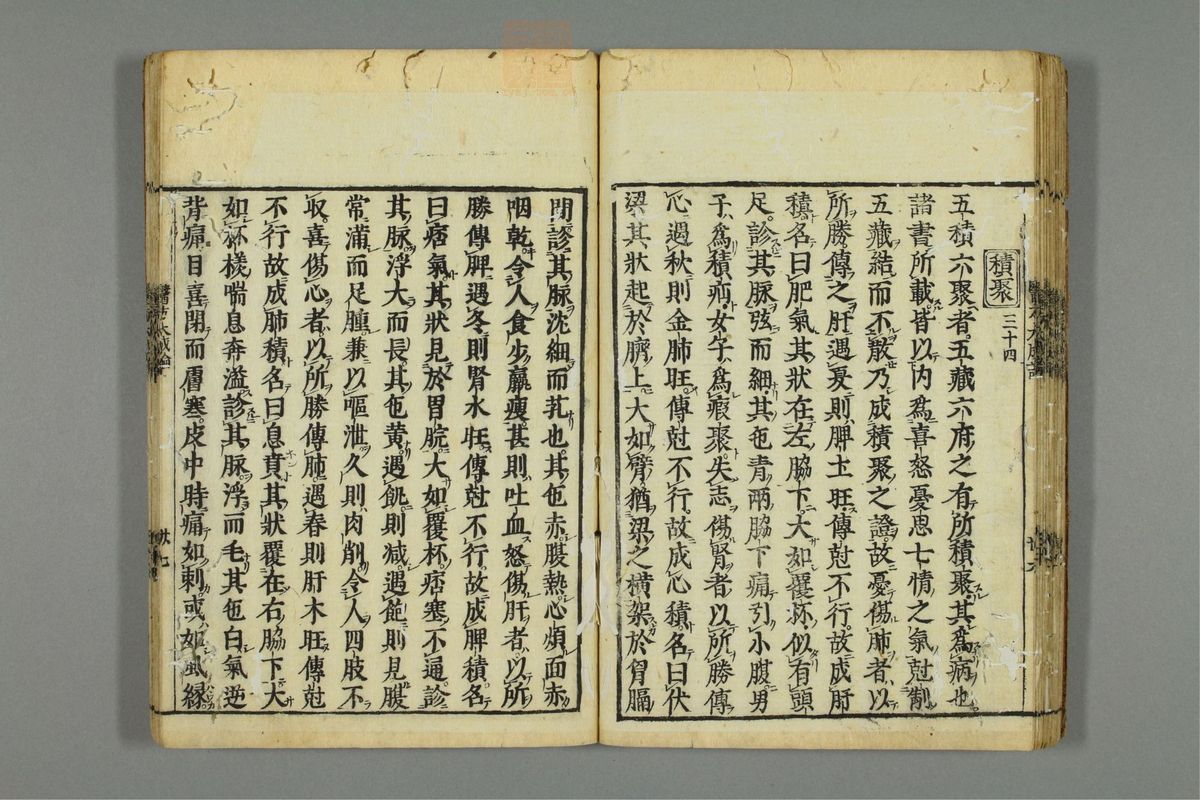 積聚 三十四
五積六聚者五藏六府之有所積聚其爲病也
諸書所載皆以内爲喜怒憂思七情之氣尅制
五藏結而不散乃成積聚之證故憂傷肺者以
所勝傳之肝遇夏則脾土旺傳尅不行故成肝
積名曰肥氣其狀在左脇下大如覆杯似有頭
足診其脉弦而細其色青兩脇下痛引小腹男
子爲積疝女子爲瘕聚失志傷腎者以所勝傳
心遇秋則金肺旺傳尅不行故成心積名曰伏
梁其狀起於臍上大如臂猶梁之橫架於胷膈
間診其脉沈細而芤也其色赤腹熱心煩面赤
咽乾令人食少羸瘦甚則吐血怒傷肝者以所
勝傳脾遇冬則腎水旺傳尅不行故成脾積名
曰痞氣其狀見於胃脘大如覆杯痞塞不通診
其脉浮大而長其色黄遇飢則減遇飽則見腹
常滿而足腫兼以嘔泄久則肉削令人四肢不
収喜傷心者以所勝傳肺遇春則肝木旺傳尅
不行故成肺積名曰息賁其狀覆在右脇下大
如杯様喘息奔溢診其脉浮而毛其色白氣逆
背痛目喜閉而膚寒皮中時痛如刺或如虱緣